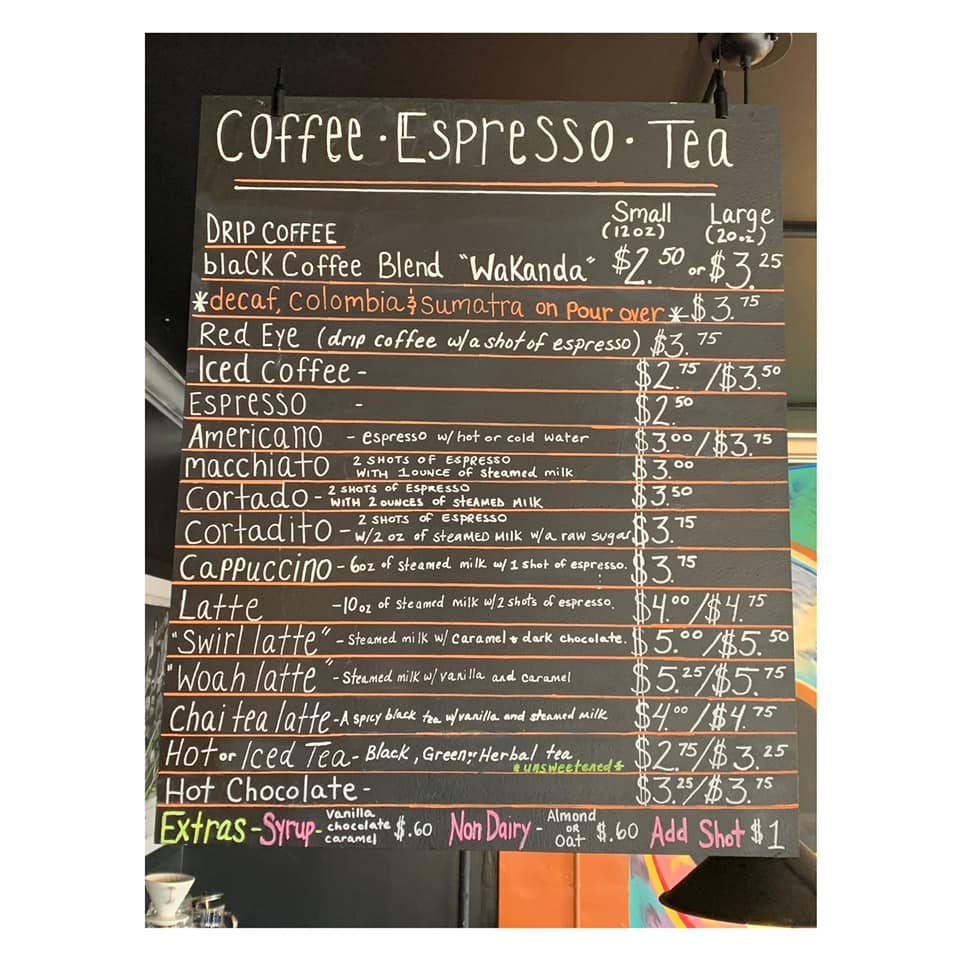 Coffee · Espresso · Tea
Small Large
(12oz) (20oz)
DRIP COFFEE
blaCK Coffee Blend "WaKanda" $2.50 or $3.25
*decaf, Colombia & Sumatra on Pour over* $3.75
Red Eye (drip coffee w/a shot of espresso) $3.75
Iced coffee - $2.75 /$3.50
ESPRESSO - $2.50
Americano - espresso w/hot or cold water $3.00/$3.75
macchiato 2 SHOTS OF ESPRESSO $3.00
WITH 1 OUNCE of steamed milk
Cortado - 2 SHOTS of ESPRESSO $3.50
WITH 2 OUNCES of STEAMED MILK
Cortadito - 2 SHOTS OF ESPRESSO $3.75
W/2 oz of steaMED MILK w/a raw sugar
Cappuccino - 6oz of steamed milk w/1 shot of espresso. $3.75
Latte - 10oz of steamed milk w/2 shots of espresso. $4.00/$4.75
"Swirl latte" - Steamed milk w/ caramel & dark chocolate. $5.00/$5.50
"Woah latte" - Steamed milk w/vanilla and caramel $5.25/$5.75
Chai tea latte - A spicy black tea w/vanilla and steamed milk $4.00/$4.75
Hot or Iced Tea - Black, Green, or Herbal tea $2.75/$3.25
*unsweetened*
Hot Chocolate - $3.25/$3.75
Extras - Syrup - vanilla chocolate caramel $.60 Non Dairy - Almond OR Oat $.60 Add Shot $1